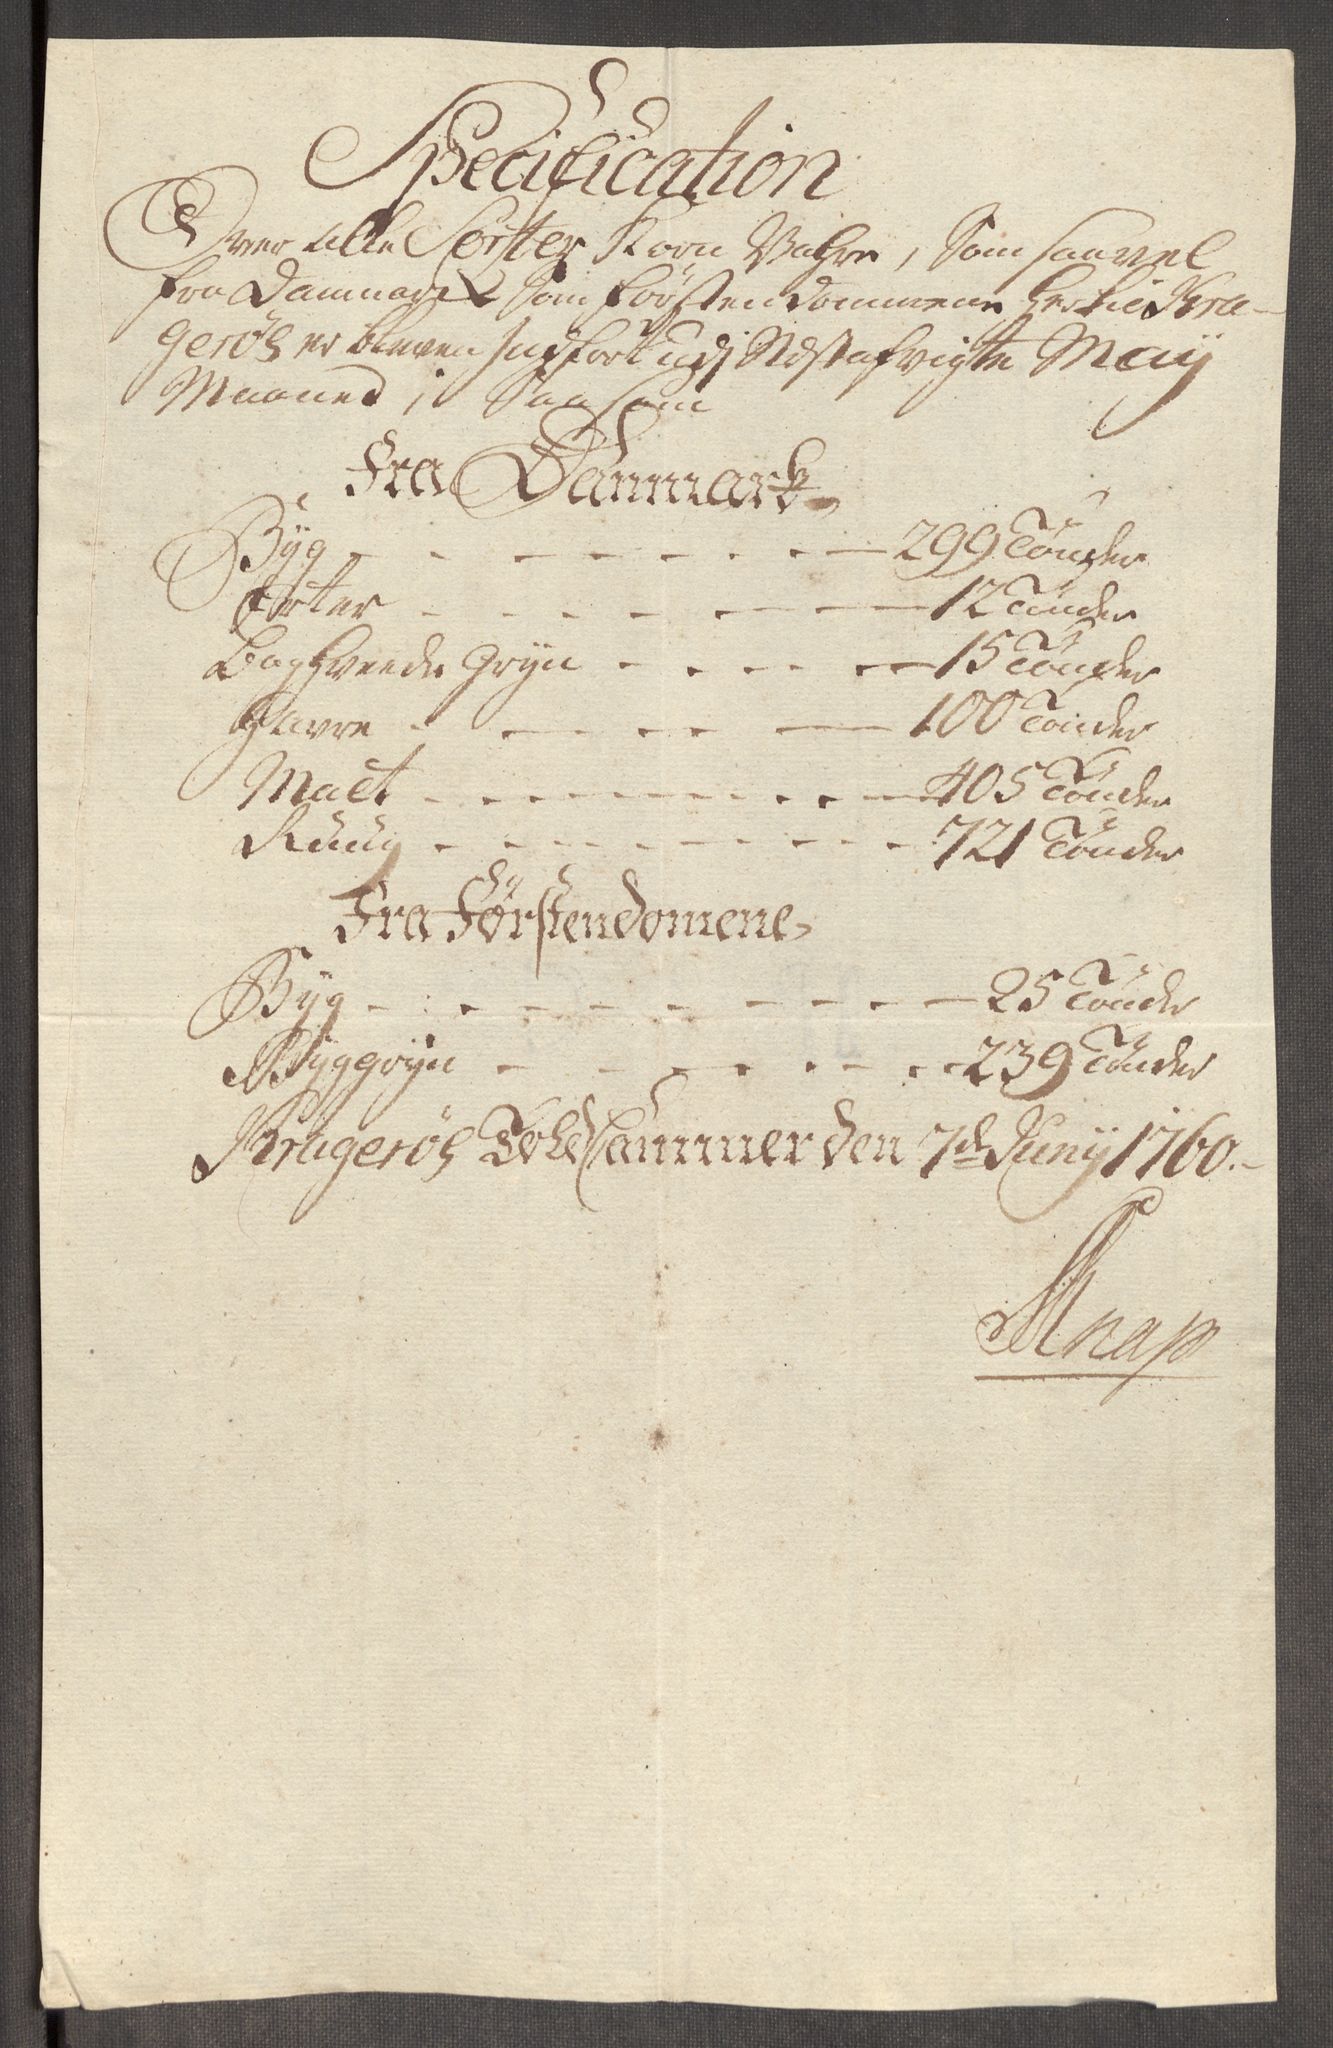 Specification
Over alle Sorter Korn Vahre, som saavel
fra Danmarck som Förstendommene hertil Kra-
geröe er bleven Indfört udj Nestafvigte Maij
Maaned, Saasom
Fra Danmark
Bÿg - - - - - - - 299 Tönder
Erter - - - - - - - 12 Tönder
Boghveede Grÿn - - - - - 15 Tönder
Havre - - - - - - 100 Tönder
Malt - - - - - - - - - 405 Tönder
Ruug - - - - - - - - - 721 Tönder
Fra Förstendomene
Bÿg - - - - - - - - - - 25 Tönder
Byggrÿn - - - - - - - - 239 Tönder
Krageröe Told Cammer den 7de Junij 1760.-
Knap